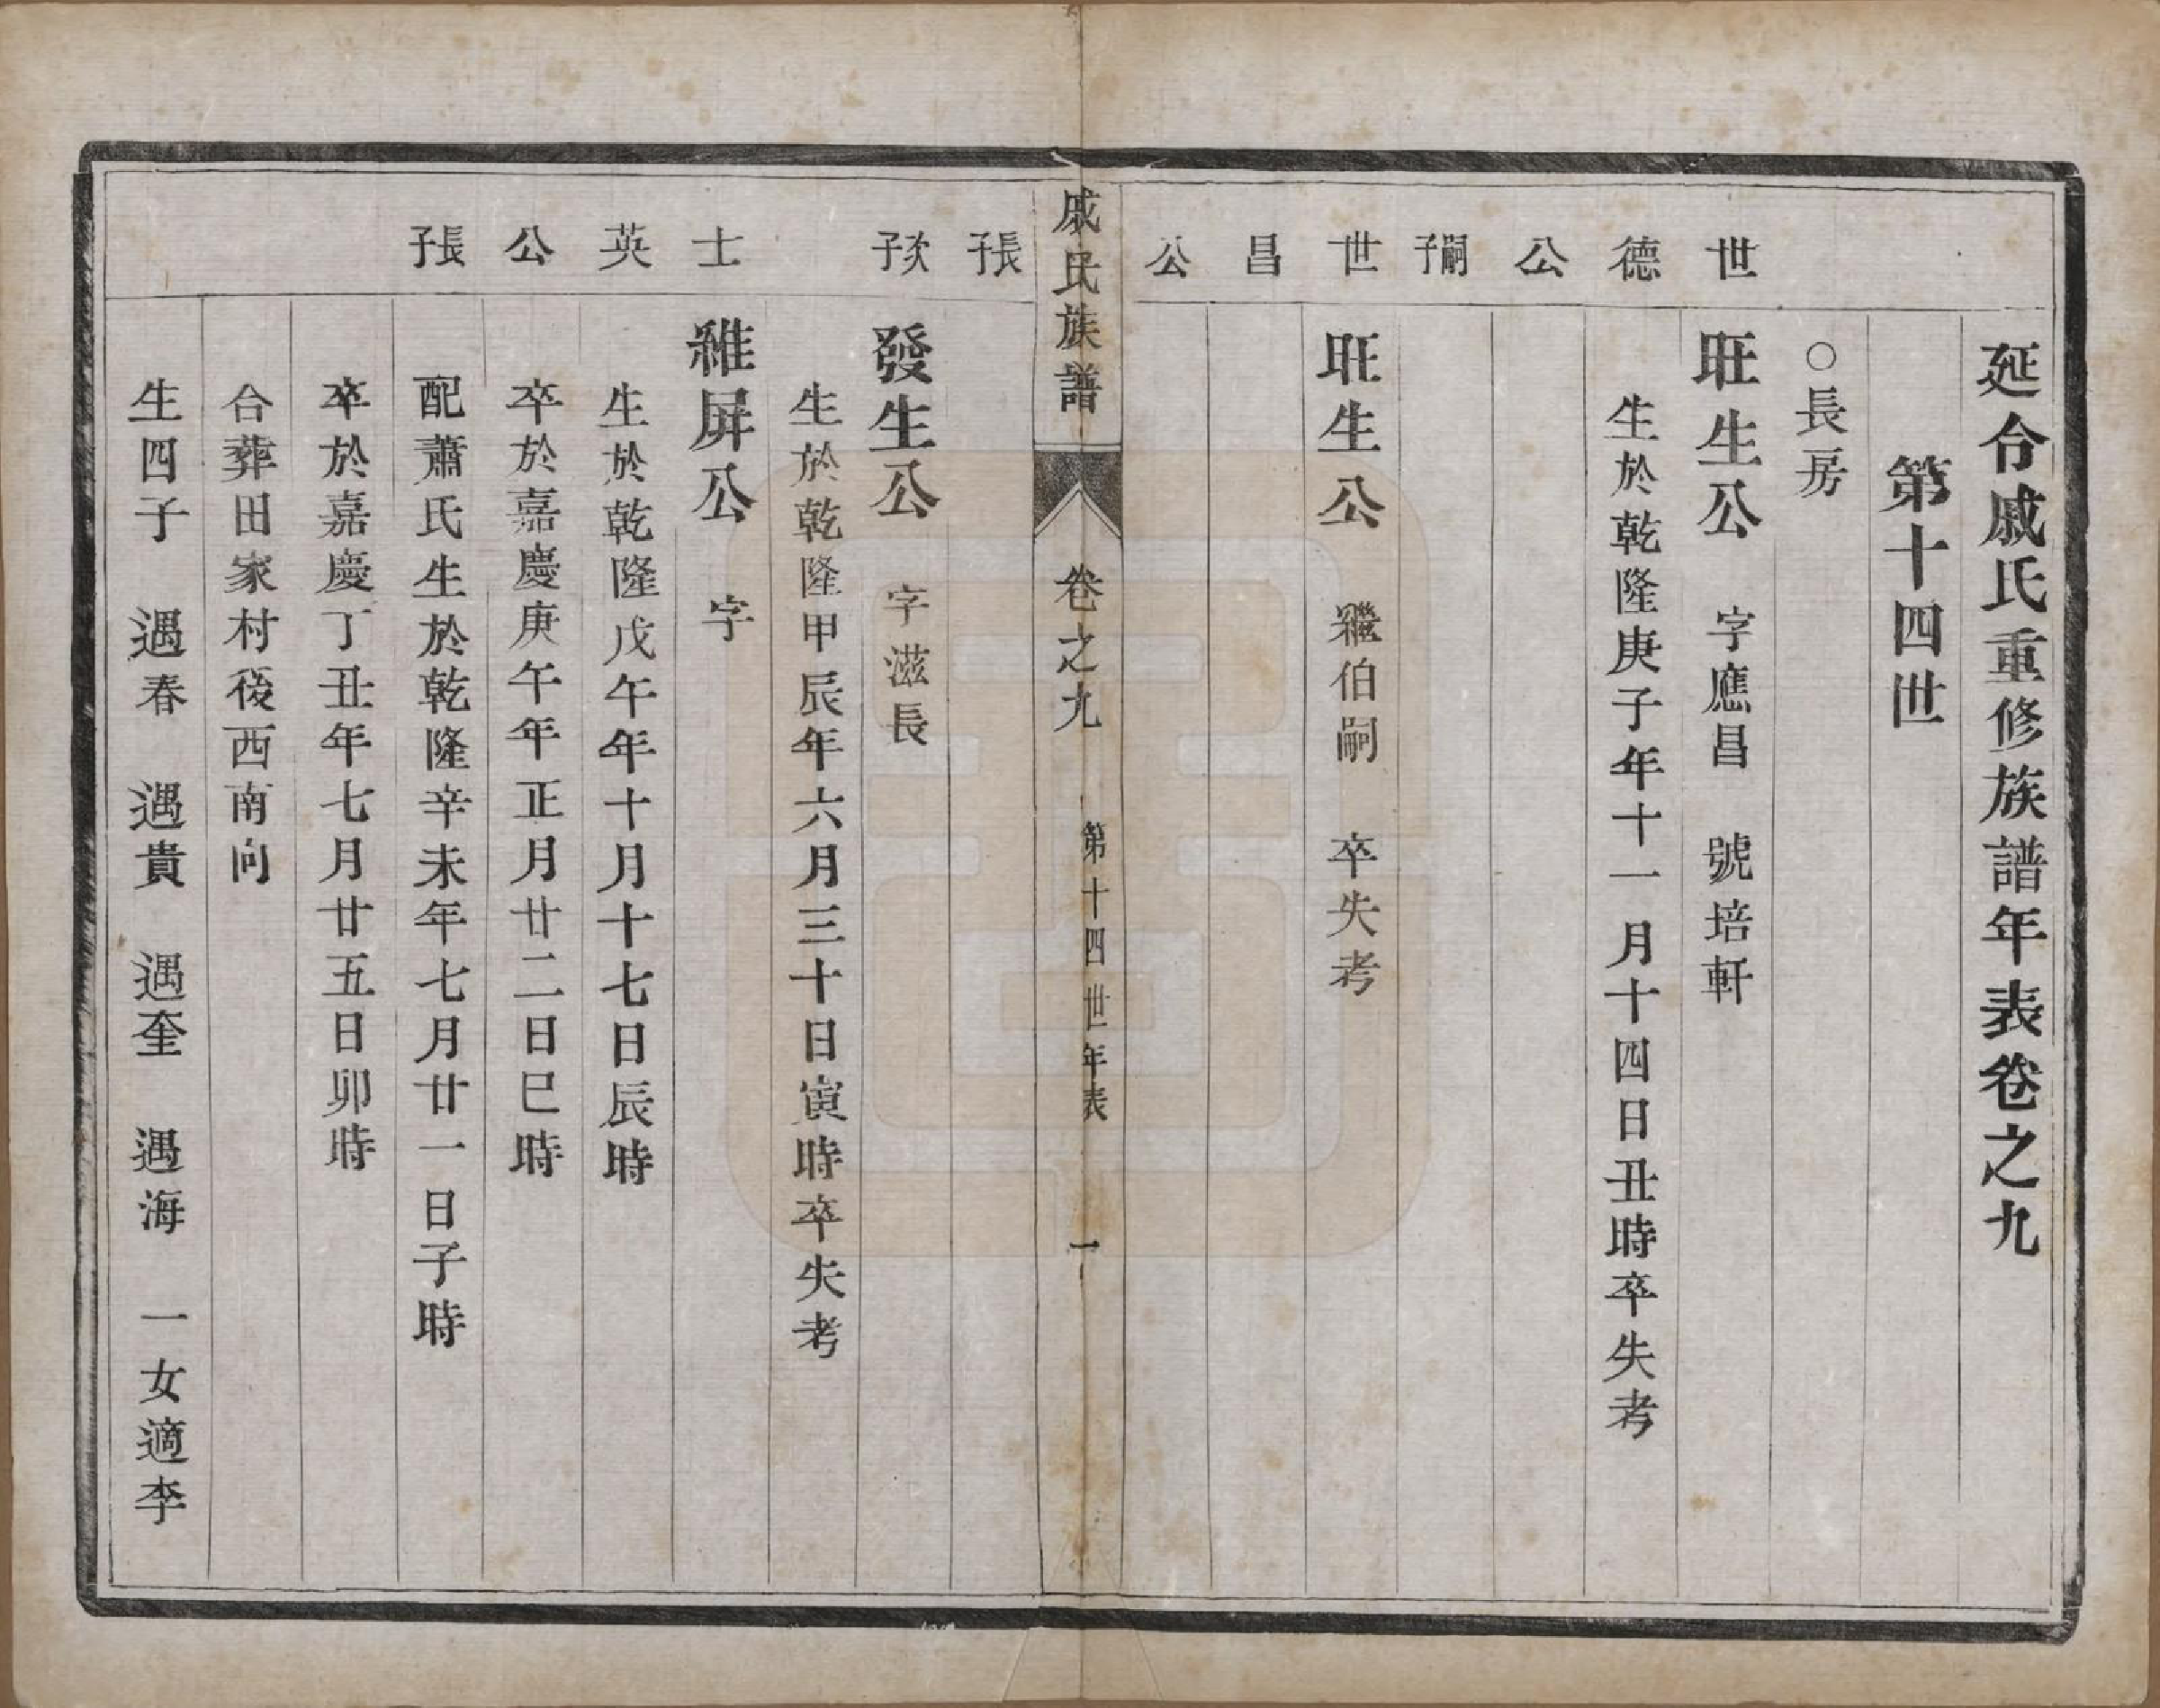 延令戚氏重修族譜年表卷之九
第十四世
○長房
世德公嗣子
旺生公 字應昌 號培軒
生於乾隆庚子年十一月十四日丑時卒失考
世昌公長子
旺生公 繼伯嗣 卒失考
戚氏族譜 卷之九 第十四世年表 一
次子
發生公 字滋長
生於乾隆甲辰年六月三十日寅時卒失考
士英公長子
維屏公 字
生於乾隆戊午年十月十七日辰時
卒於嘉慶庚午年正月廿二日巳時
配蕭氏生於乾隆辛未年七月廿一日子時
卒於嘉慶丁丑年七月廿五日卯時
合葬田家村後西南向
生四子 遇春 遇貴 遇奎 遇海 一女適李